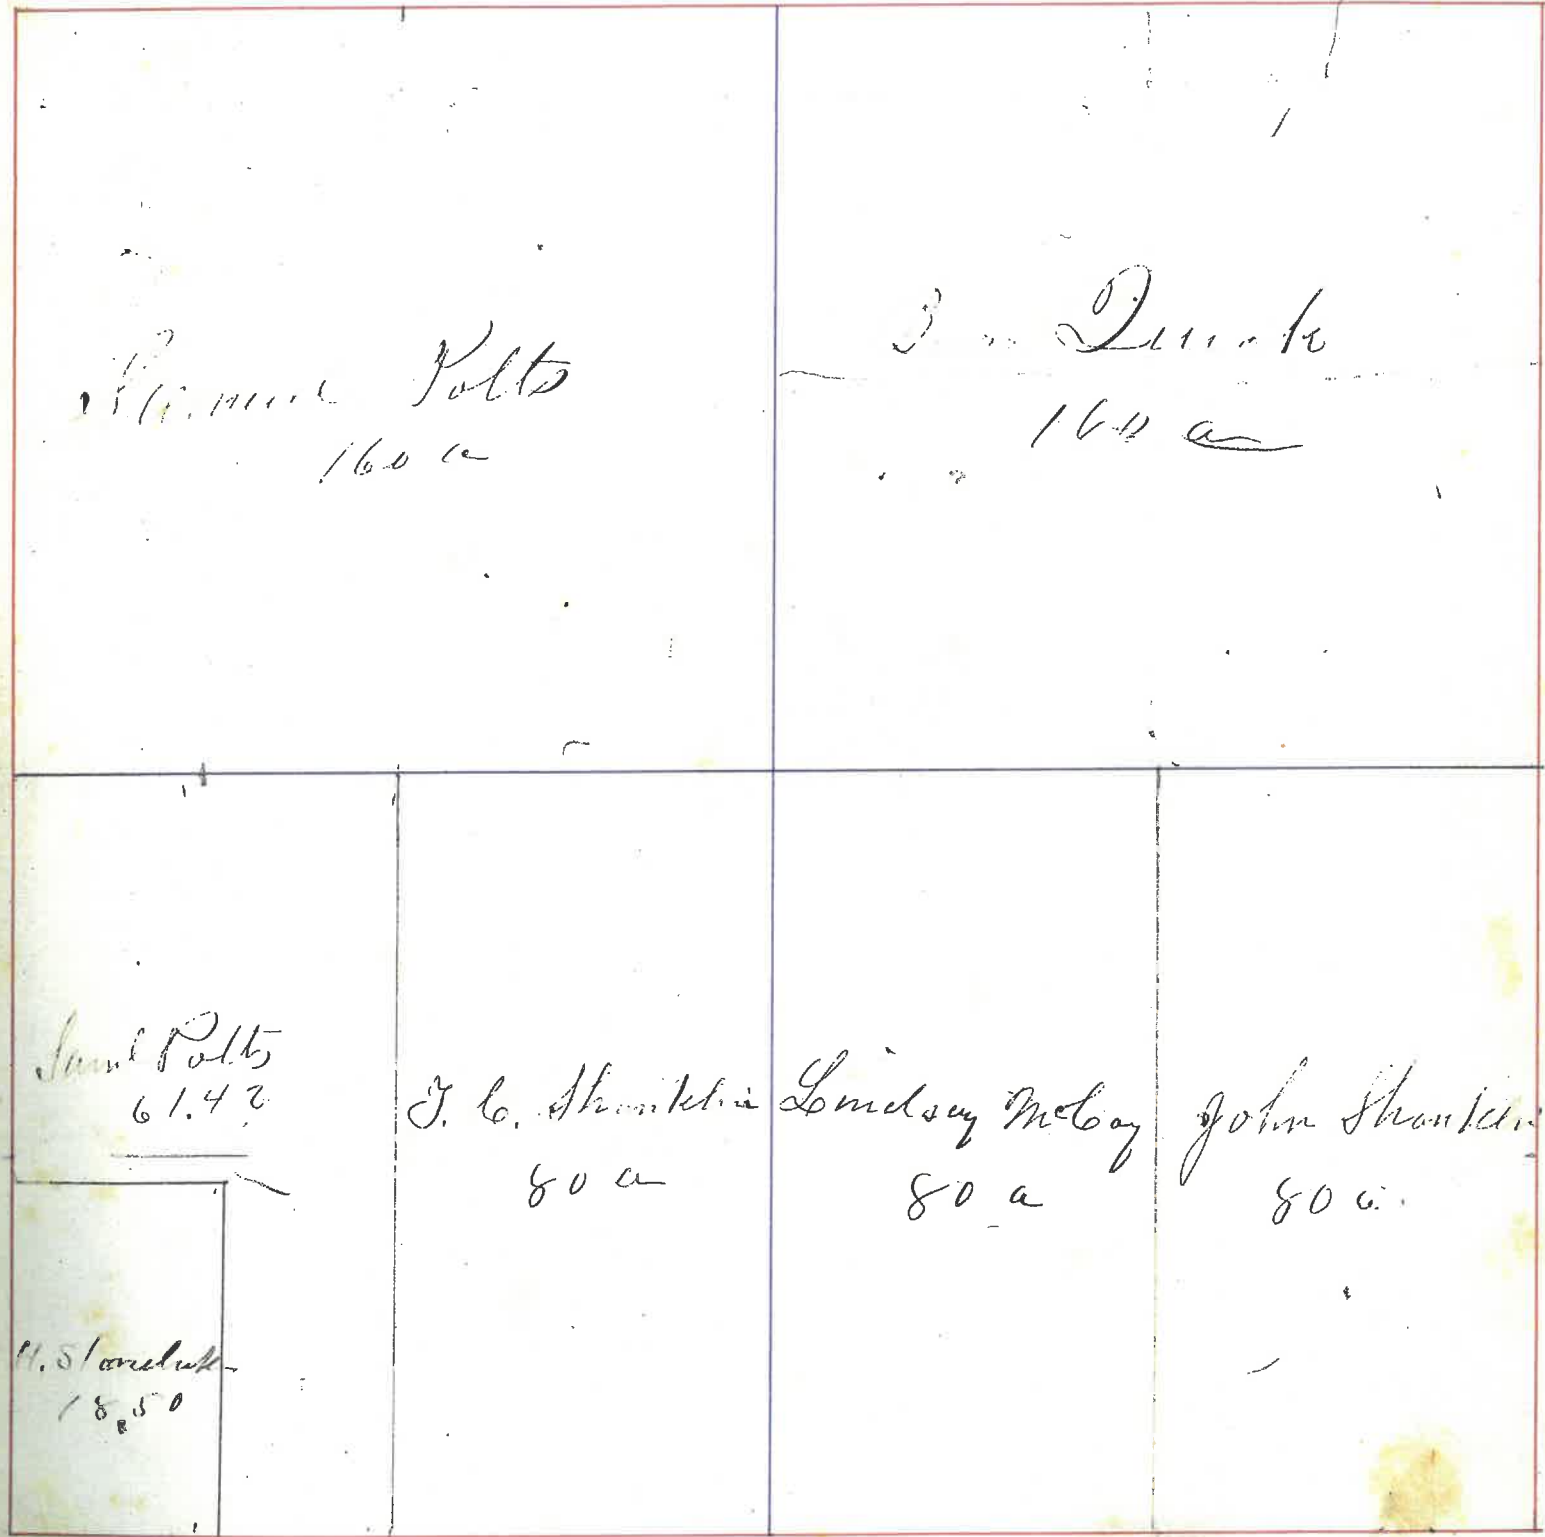 Potts
160 a
160 a
Saml Potts
61.42
T. C. Shanklin
80 a
Lindsay McCoy
80 a
John Shanklin
80 a.
H.
18.50